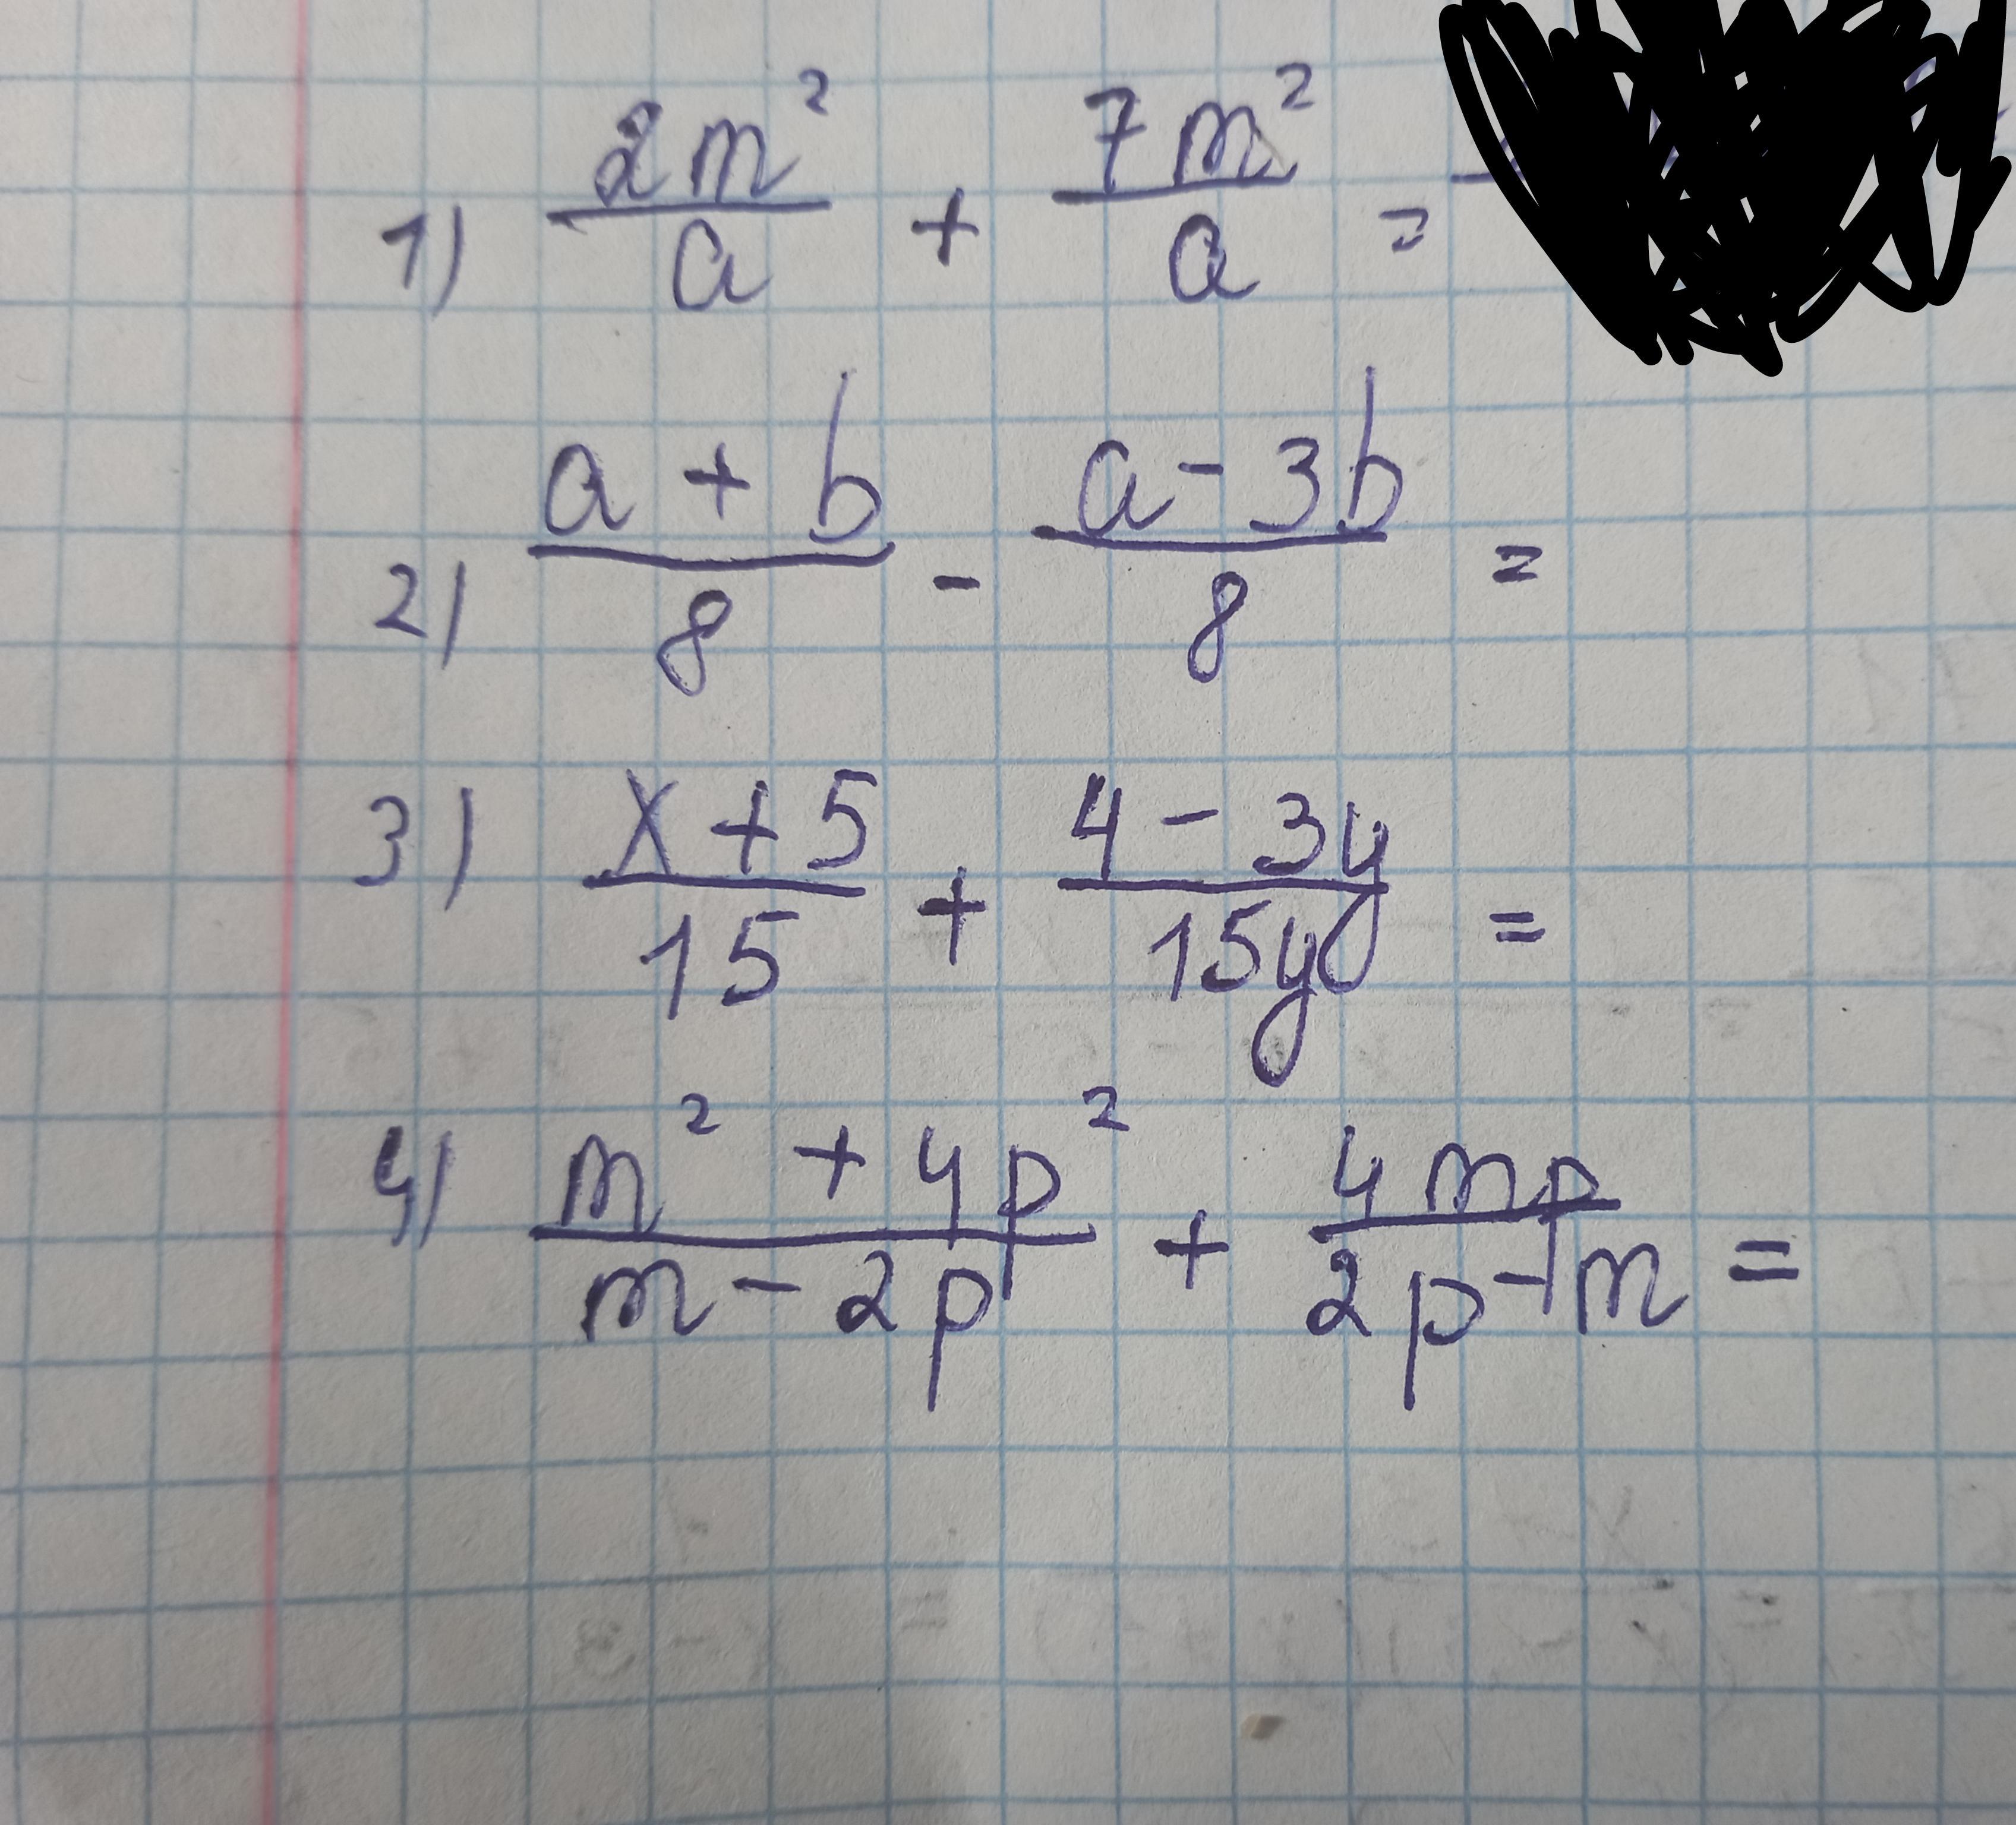 1) 2m²/a + 7m²/a =
2) a + b/8 - a - 3b/8 =
3) x + 5/15 + 4 - 3y/15y =
4) m² + 4p²/m - 2p + 4mp/2p - m =